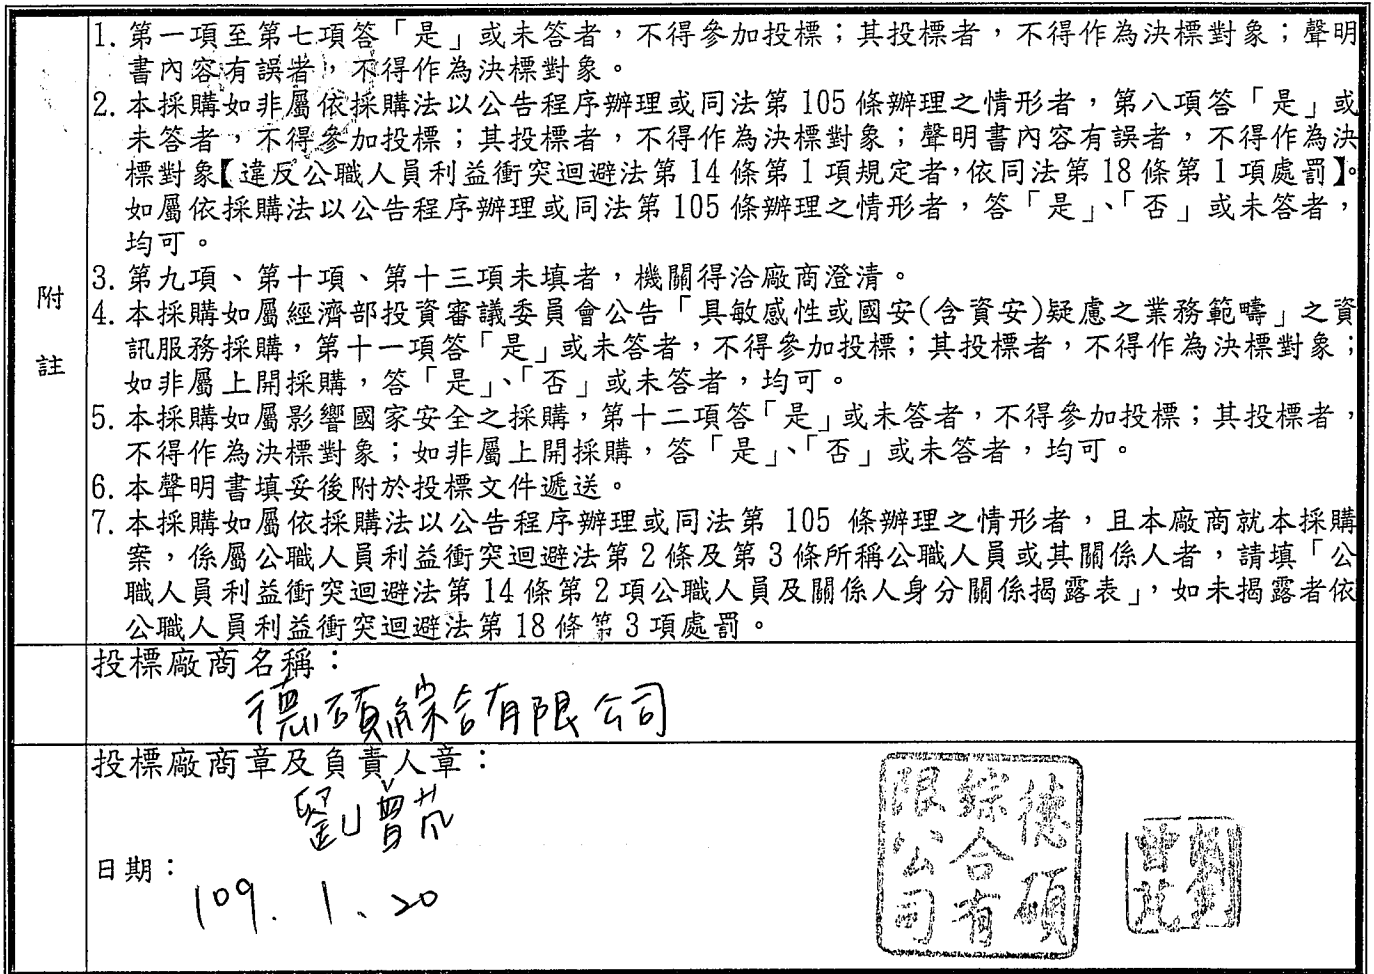 附註
1. 第一項至第七項答「是」或未答者，不得參加投標；其投標者，不得作為決標對象；聲明
書內容有誤者，不得作為決標對象。
2. 本採購如非屬依採購法以公告程序辦理或同法第 105 條辦理之情形者，第八項答「是」或
未答者，不得參加投標；其投標者，不得作為決標對象；聲明書內容有誤者，不得作為決
標對象【違反公職人員利益衝突迴避法第 14 條第 1 項規定者，依同法第 18 條第 1 項處罰】。
如屬依採購法以公告程序辦理或同法第 105 條辦理之情形者，答「是」、「否」或未答者，
均可。
3. 第九項、第十項、第十三項未填者，機關得洽廠商澄清。
4. 本採購如屬經濟部投資審議委員會公告「具敏感性或國安(含資安)疑慮之業務範疇」之資
訊服務採購，第十一項答「是」或未答者，不得參加投標；其投標者，不得作為決標對象；
如非屬上開採購，答「是」、「否」或未答者，均可。
5. 本採購如屬影響國家安全之採購，第十二項答「是」或未答者，不得參加投標；其投標者，
不得作為決標對象；如非屬上開採購，答「是」、「否」或未答者，均可。
6. 本聲明書填妥後附於投標文件遞送。
7. 本採購如屬依採購法以公告程序辦理或同法第 105 條辦理之情形者，且本廠商就本採購
案，係屬公職人員利益衝突迴避法第 2 條及第 3 條所稱公職人員或其關係人者，請填「公
職人員利益衝突迴避法第 14 條第 2 項公職人員及關係人身分關係揭露表」，如未揭露者依
公職人員利益衝突迴避法第 18 條第 3 項處罰。
投標廠商名稱：
德碩綜合有限公司
投標廠商章及負責人章：
劉曾芃
德碩
綜合有
限公司
劉
曾芃
日期：
109. 1、20